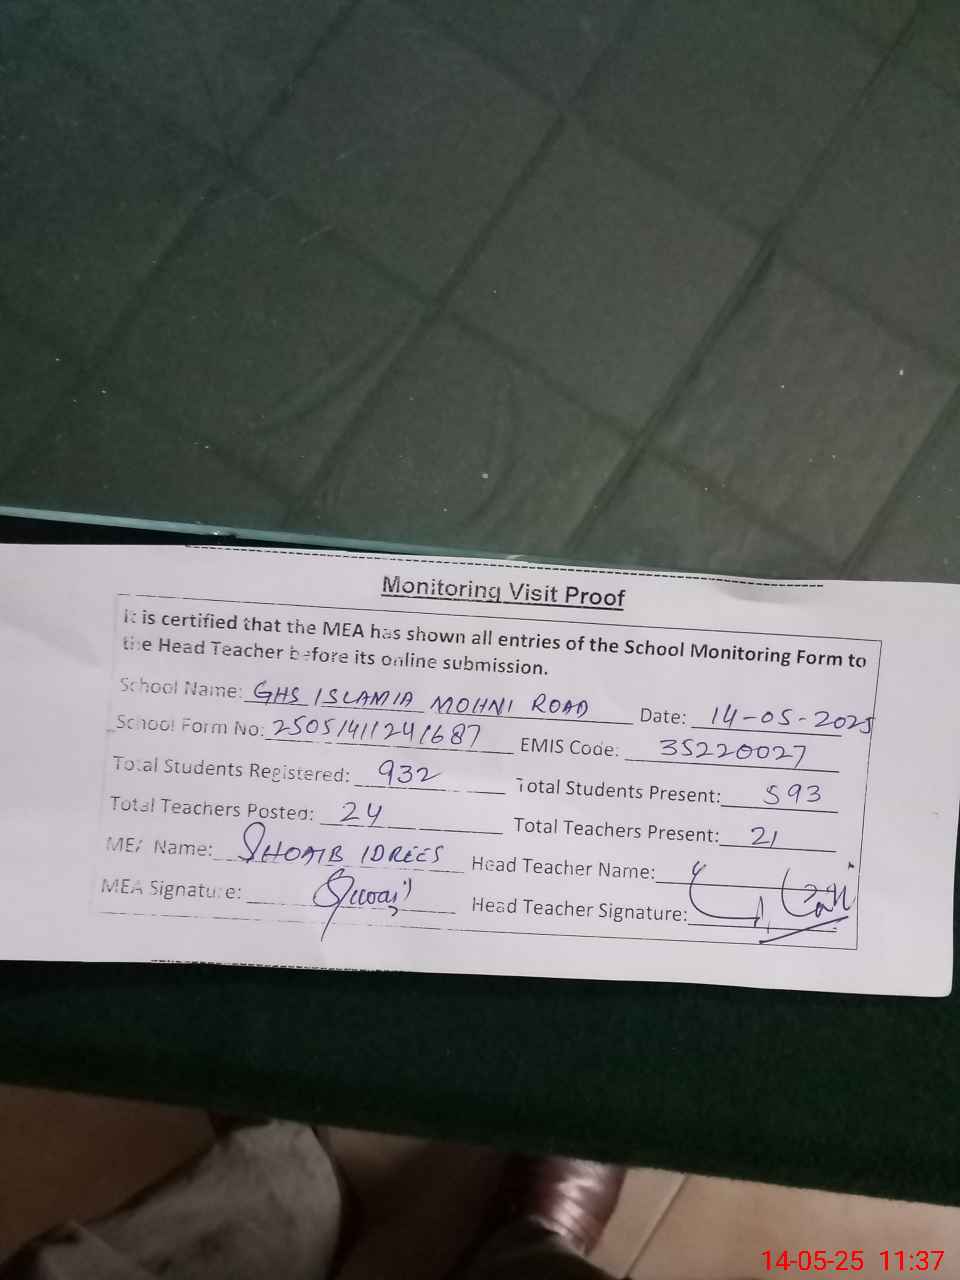 Monitoring Visit Proof
It is certified that the MEA has shown all entries of the School Monitoring Form to
the Head Teacher before its online submission.
School Name: GHS ISLAMIA MOHNI ROAD Date: 14-05-2025
School Form No: 25051411241687 EMIS Code: 35220027
Total Students Registered: 932 Total Students Present: 593
Total Teachers Posted: 24 Total Teachers Present: 21
MEA Name: SHOAIB IDREES Head Teacher Name:
MEA Signature: Head Teacher Signature:
14-05-25 11:37